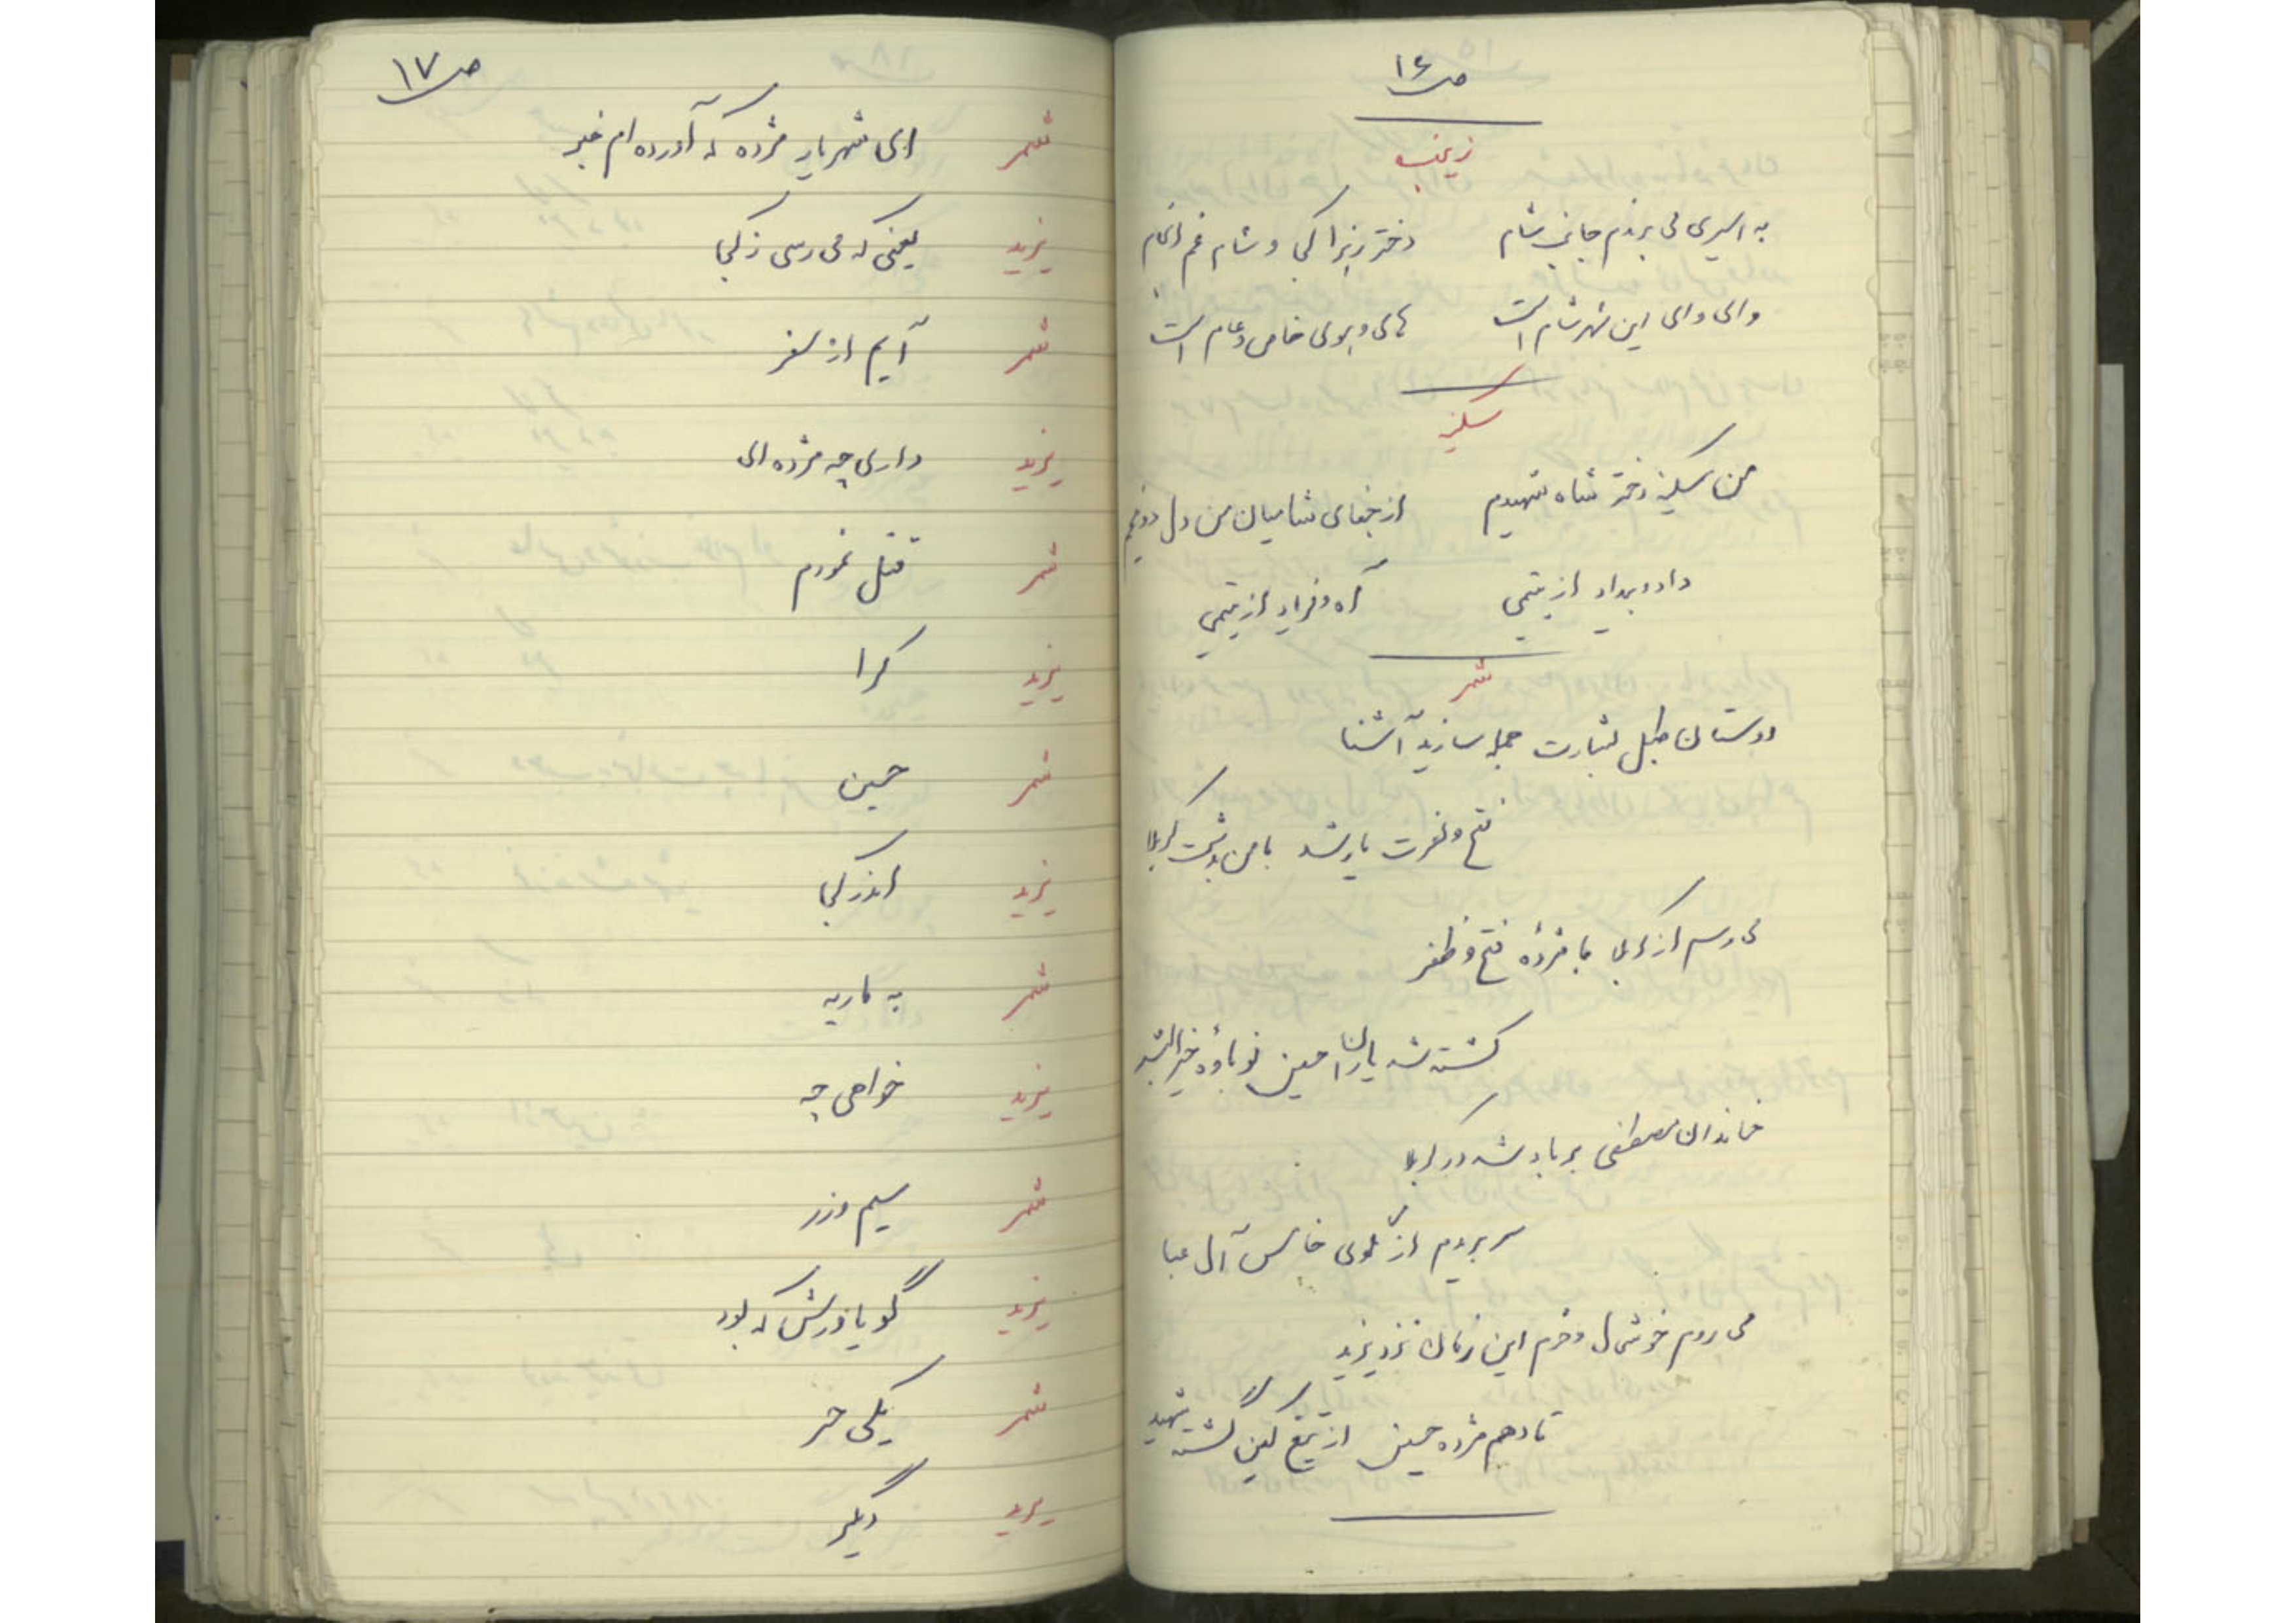 ص ۱۶
زینب
به اسیری می برندم جانب شام    دختر زهرا کجا و شام غم انجام
وای وای این شهر شام است    های و هوی خاص و عام است
سکینه
من سکینه دختر شاه شهیدم    از جفای شامیان من دل دونیم
داد و بیداد از یتیمی    آه و فریاد از یتیمی
شمر
دوستان طبل بشارت جمله سازید آشنا
فتح و نصرت یار شد با من به دشت کربلا
می رسم از کربلا با مژدۀ فتح و ظفر
کشته شد یاران حسین نوباوۀ خیرالبشر
خاندان مصطفی بر باد شد در کربلا
سر بریدم از گلوی خامس آل عبا
می روم خوشدل و خرم این زمان نزد یزید
تا دهم مژده حسین از تیغ کین گشته شهید
ص ۱۷
شمر    ای شهریار مژده که آورده ام خبر
یزید    یعنی که می رسی ز کجا
شمر    آیم از سفر
یزید    داری چه مژده ای
شمر    قتل نمودم
یزید    کرا
شمر    حسین
یزید    اندر کجا
شمر    به ماریه
یزید    خواهی چه
شمر    سیم و زر
یزید    گو یاورش که بود
شمر    یکی حر
یزید    دیگر